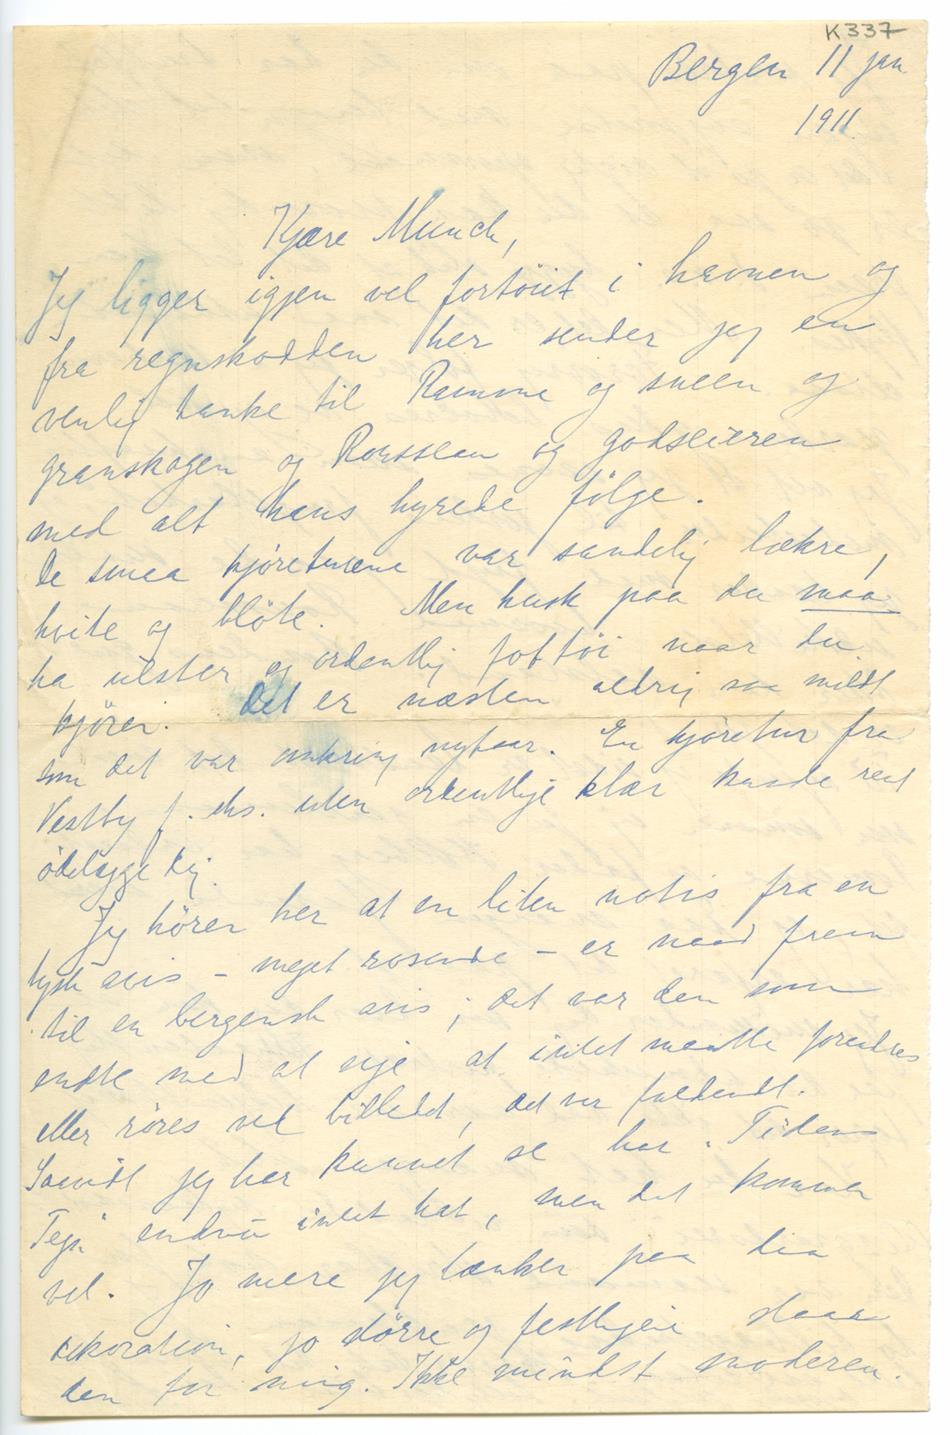 K337
Bergen 11 jan
1911
Kjære Munch,
Jeg ligger igjen vel fortöiet i havnen og
fra regnskodden her sender jeg en
venlig tanke til Ramme og sneen og
granskogen og Rousseau og godseieren
med alt hans hyrede fölge.
De smaa kjöreturene var sandelig lækre,
hvite og blöte. Men husk paa du maa
ha ulster og ordentlig fottöi naar du
kjörer. Det er næsten aldrig saa mildt
som det var omkring nytaar. En kjöretur fra
Vestby f. eks. uten ordentlige klær kunde rent
ödelægge dig.
Jeg hörer her at en liten notis fra en
tysk avis – meget rosende – er naad frem
til en bergensk avis; det var den som
endte med at sige at intet maatte forandres
eller röres ved billedet, det var fuldendt.
Saavidt jeg har kunnet se har „Tidens
Tegn" endnu intet hat, men det kommer
vel. Jo mere jeg tænker paa din
dekoration, jo större og festligere staar
den for mig. Ikke mindst moderen.